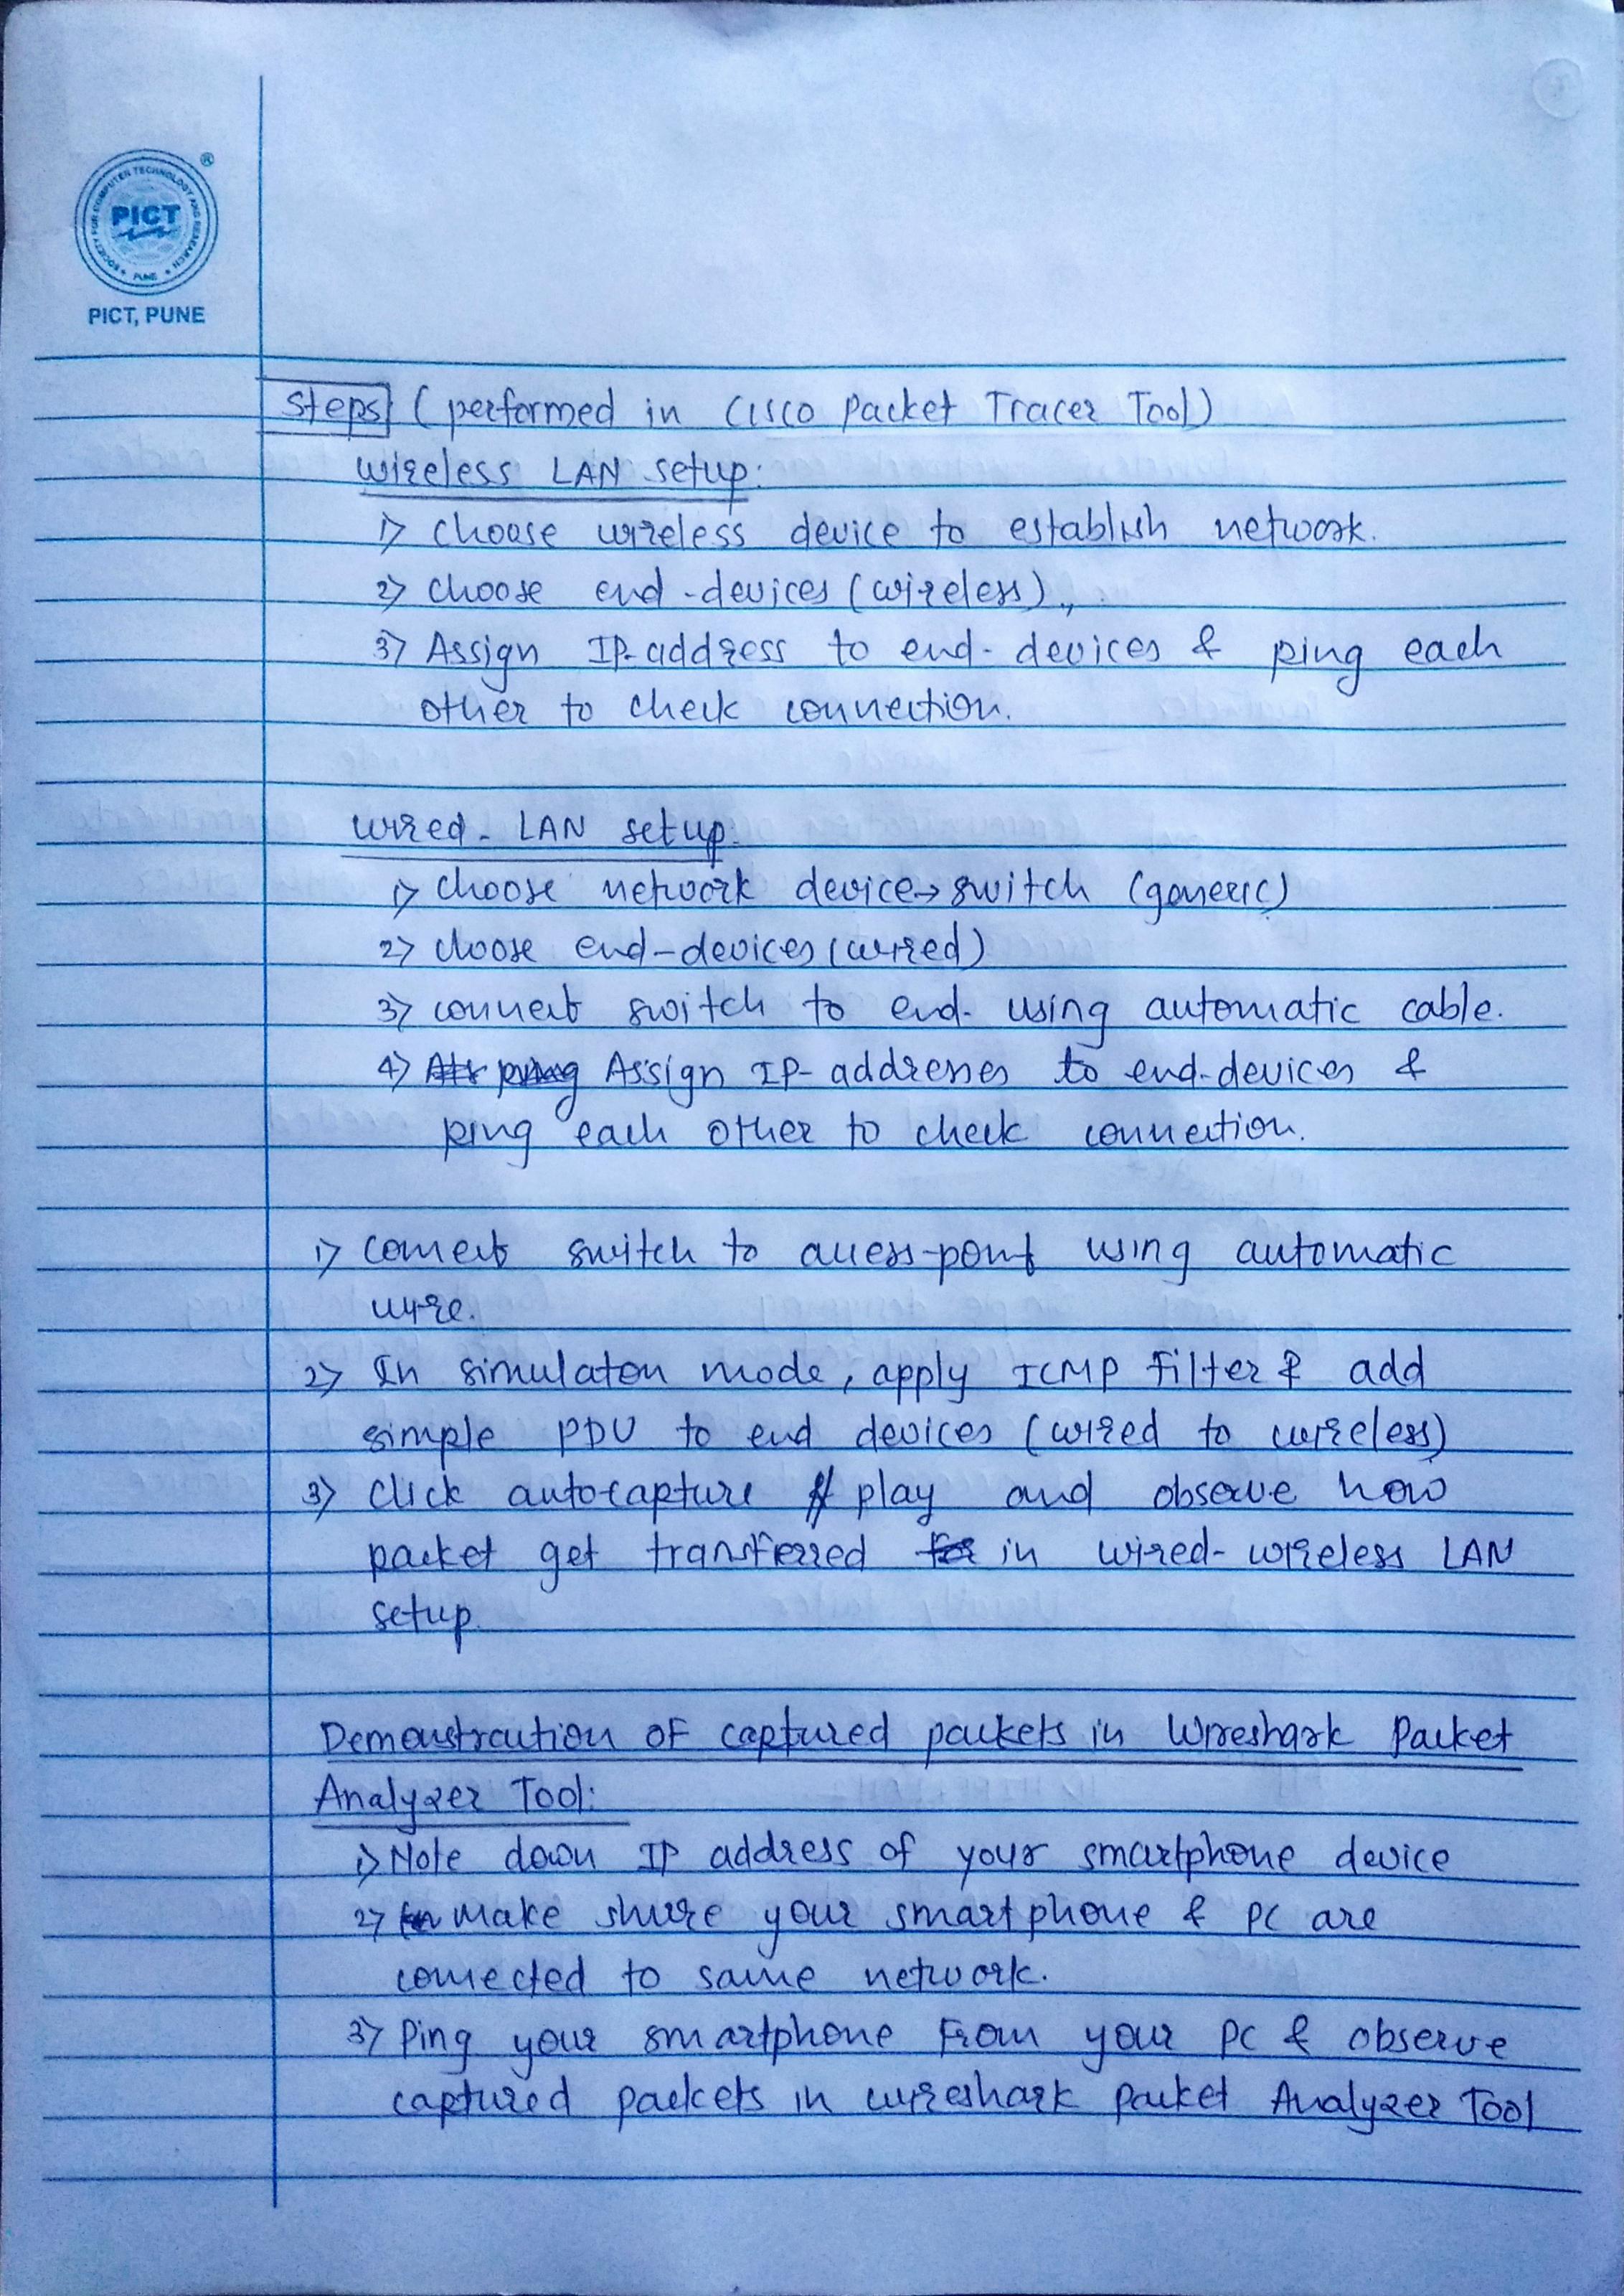 SOCIETY FOR COMPUTER TECHNOLOGY AND RESEARCH
®
PICT
PUNE
PICT, PUNE
Steps (performed in Cisco Packet Tracer Tool)
wireless LAN setup:
1) choose wireless device to establish network.
2) choose end-devices (wireless).,
3) Assign IP-address to end-devices & ping each
other to check connection.
wired-LAN setup.
1) choose network device→switch (generic)
2) choose end-devices (wired)
3) connect switch to end- using automatic cable.
4) Assign IP-addresses to end-devices &
ping each other to check connection.
1) connect switch to access-point using automatic
wire.
2) In simulaton mode, apply ICMP filter & add
simple PDU to end devices (wired to wireless)
3) click autocapture play and observe how
packet get transferred in wired-wireless LAN
setup.
Demonstration of captured packets in Wireshark Packet
Analyzer Tool:
1) Note down IP address of your smartphone device
2) make shure your smartphone & PC are
connected to same network.
3) Ping your smartphone from your PC & observe
captured packets in wireshark packet Analyzer Tool